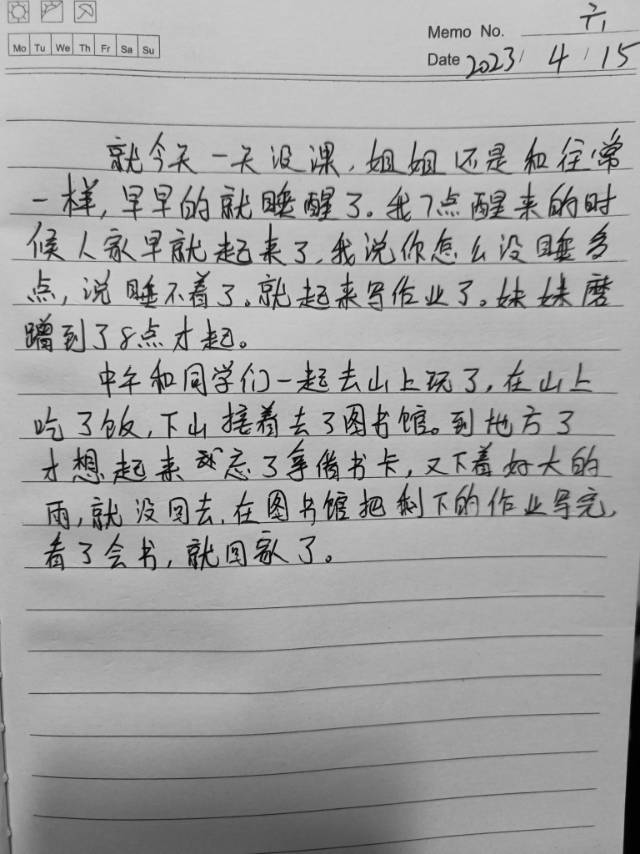 Memo No. 六
Mo Tu We Th Fr Sa Su
Date 2023/ 4 / 15
就今天一天没课,姐姐还是和往常
一样,早早的就睡醒了。我7点醒来的时
候人家早就起来了,我说你怎么没睡多
点,说睡不着了。就起来写作业了。妹妹磨
蹭到了8点才起。
中午和同学们一起去山上玩了,在山上
吃了饭,下山接着去了图书馆。到地方了
才想起来忘了拿借书卡,又下着好大的
雨,就没回去,在图书馆把剩下的作业写完,
看了会书,就回家了。